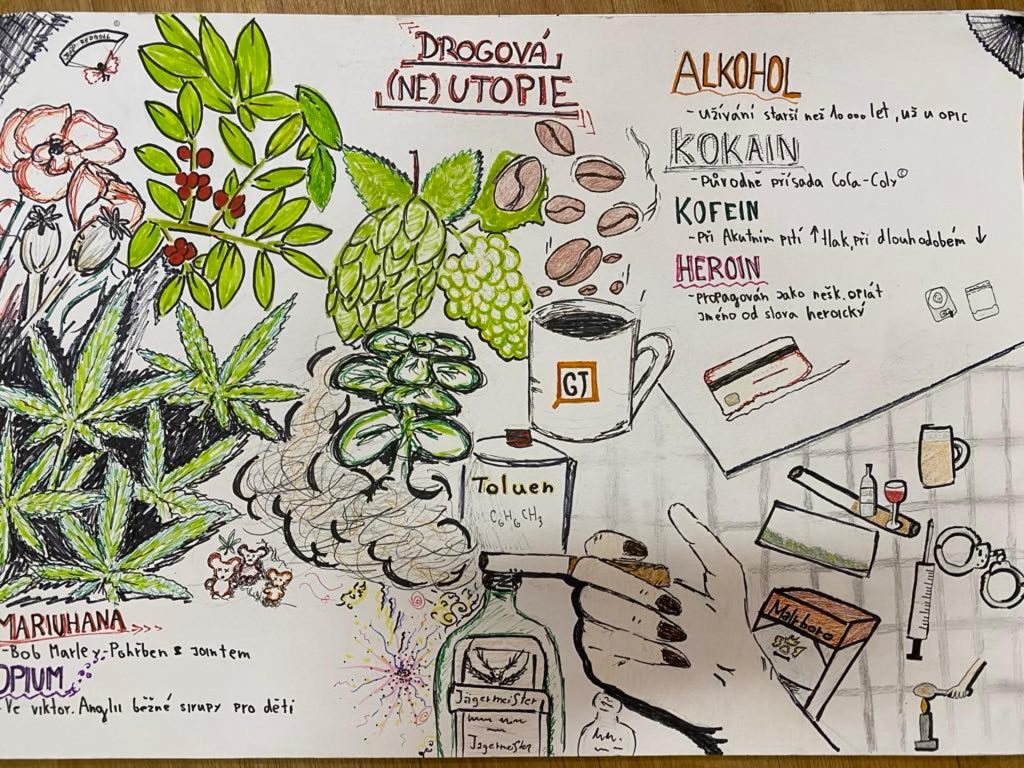 DROGOVÁ
(NE)UTOPIE
ALKOHOL
- Užívání starší než 10 000 let, už u opic
KOKAIN
- Původně přísada Coca-Coly©
KOFEIN
- Při Akutním pití ↑ tlak, při dlouhodobém ↓
HEROIN
- Propagován jako nešk. opiát
Jméno od slova heroický
GT
Toluen
C6H6CH3
Malkboro
Jägermeister
Jägermeister
MARIUHANA >>>
- Bob Marley - Pohřben s Jointem
OPIUM
- Ve viktor. Anglii běžné sirupy pro děti